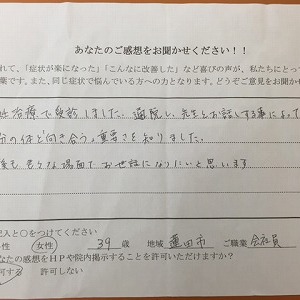 あなたのご感想をお聞かせください！！
れて、「症状が楽になった」「こんなに改善した」など喜びの声が、私たちにとって
葉です。また、同じ症状で悩んでいる方への力となります。どうぞご意見をお聞かせ
治療で受診しました。通院し、先生とお話しする事によって
分の体と向き合う重要さを知りました。
後も色々な場面でお世話になりたいと思います
記入と○をつけてください
性 女性 39 歳 地域 蓮田市 ご職業 会社員
なたの感想をＨＰや院内掲示することを許可いただけますか？
可する 許可しない